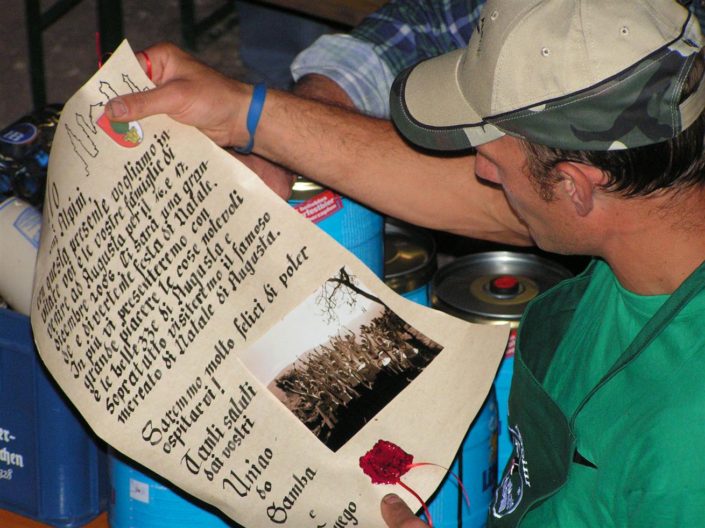 Alpini,
con questa presente vogliamo in-
vitare voi e le vostre famiglie di
venire ad Augusta dal 16. e 17.
dicembre 2006. Ci sarà una gran-
de e divertente festa di Natale.
In più vi presenteremo con
grande piacere le cose notevoli
e le bellezze di Augusta e
sopratutto visiteremo il famoso
mercato di Natale di Augusta.
Saremmo molto felici di poter
ospitarvi!
Tanti saluti
dai vostri
Uniao
do
Samba
328